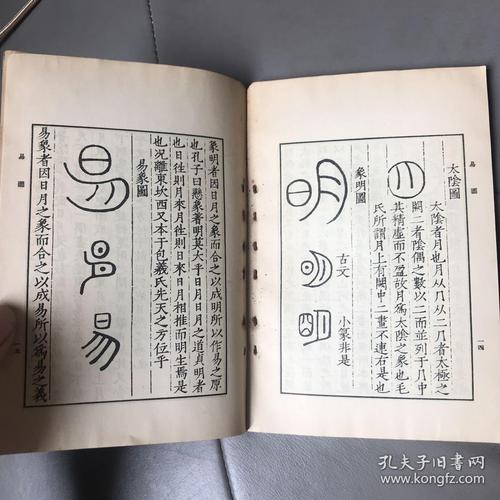 易圖
一四
太陰圖
太陰者月也月从几从二几者太極之
闕二者陰偶之數以二而並列于几中
其精虛而不盈故月爲太陰之象也毛
氏所謂月上有闕中二畫不連右是也
象明圖
明
古文
小篆非是
象明者因日月之象而合之以成明所以作易之原
也孔子曰懸象著明莫大乎日月日月之道貞明者
也日往則月來月往則日來日月相推而明生焉是
也况離東坎西又本于包羲氏先天之方位乎
易象圖
易
易
易象者因日月之象而合之以成易所以爲易之義
易圖
一五
孔夫子旧书网
www.kongfz.com